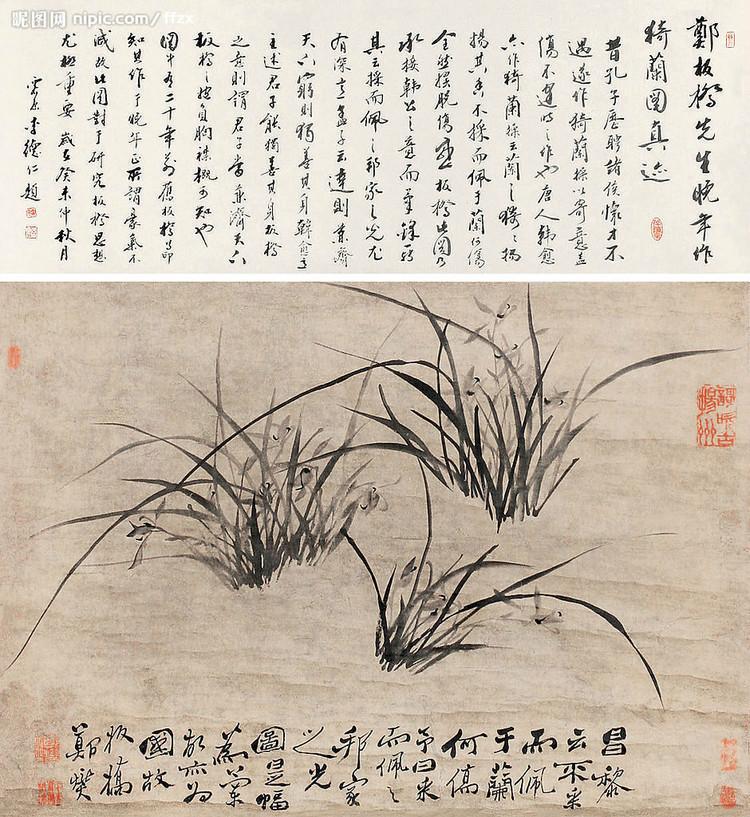 昵图网 nipic.com/ffzx
鄭板橋先生晚年作
猗蘭圖真迹
昔孔子歷聘諸侯懷才不
遇遂作猗蘭操以寄意蓋
傷不逢時之作也唐人韓愈
亦作猗蘭操云蘭之猗猗揚
揚其香不採而佩于蘭何傷
全然擺脫傷感板橋此圖乃
承接韓公之意而兼
其云採而佩之邦家之光尤
有深意孟子云達則兼濟
天下窮則獨善其身韓愈
主述君子能獨善其身板橋
之意則謂君子當兼濟天下
板橋之抱負胸襟概可知也
圖中有二十年前舊板橋印
知其作于晚年正所謂豪氣不
減故此圖對于研究板橋思想
尤為重要 歲在癸未仲秋月
李德仁題
昌黎
云不采
而佩
于蘭
何傷
予曰采
而佩之
邦家
之光
圖是幅
為
敬亦為
國故
板橋
鄭燮